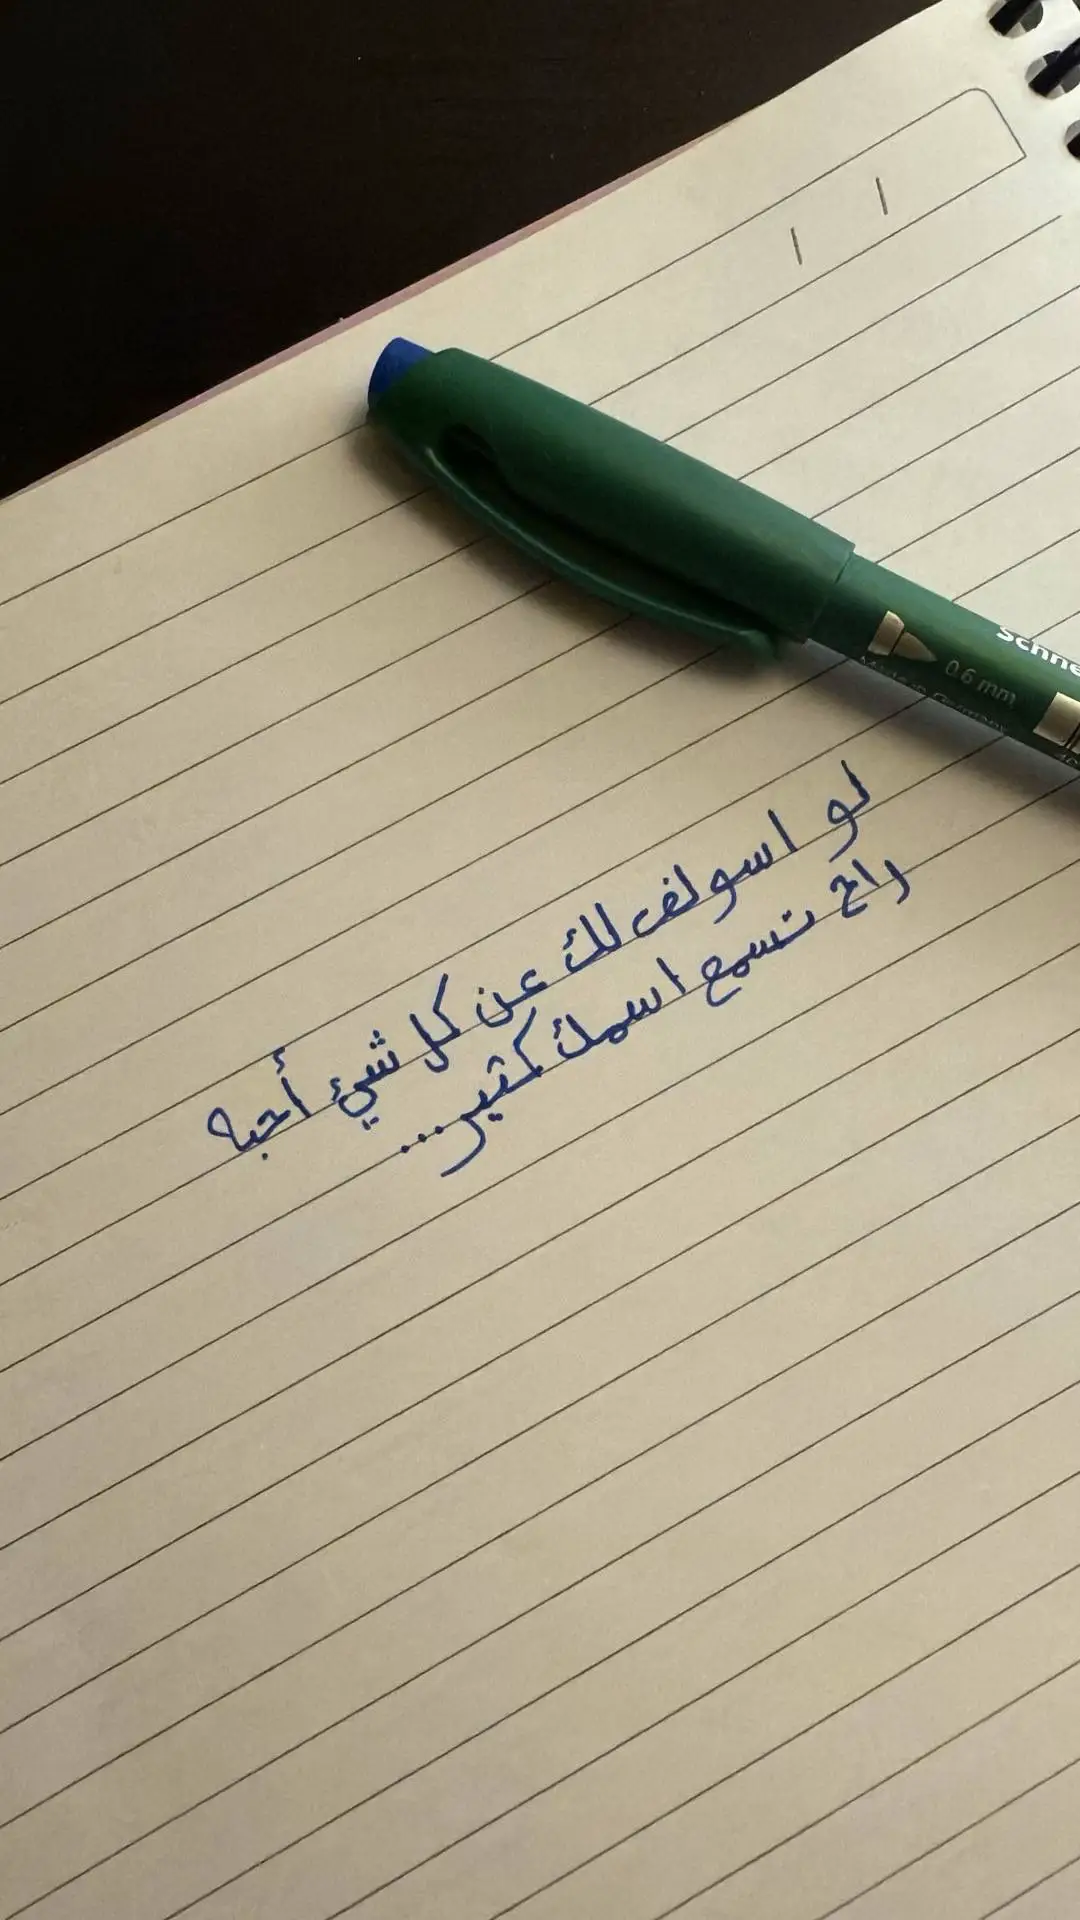 Schne
0.6 mm
Made in Germany
لو اسولف لك عن كل شيئ أحبه
راح تسمع اسمك كثير...